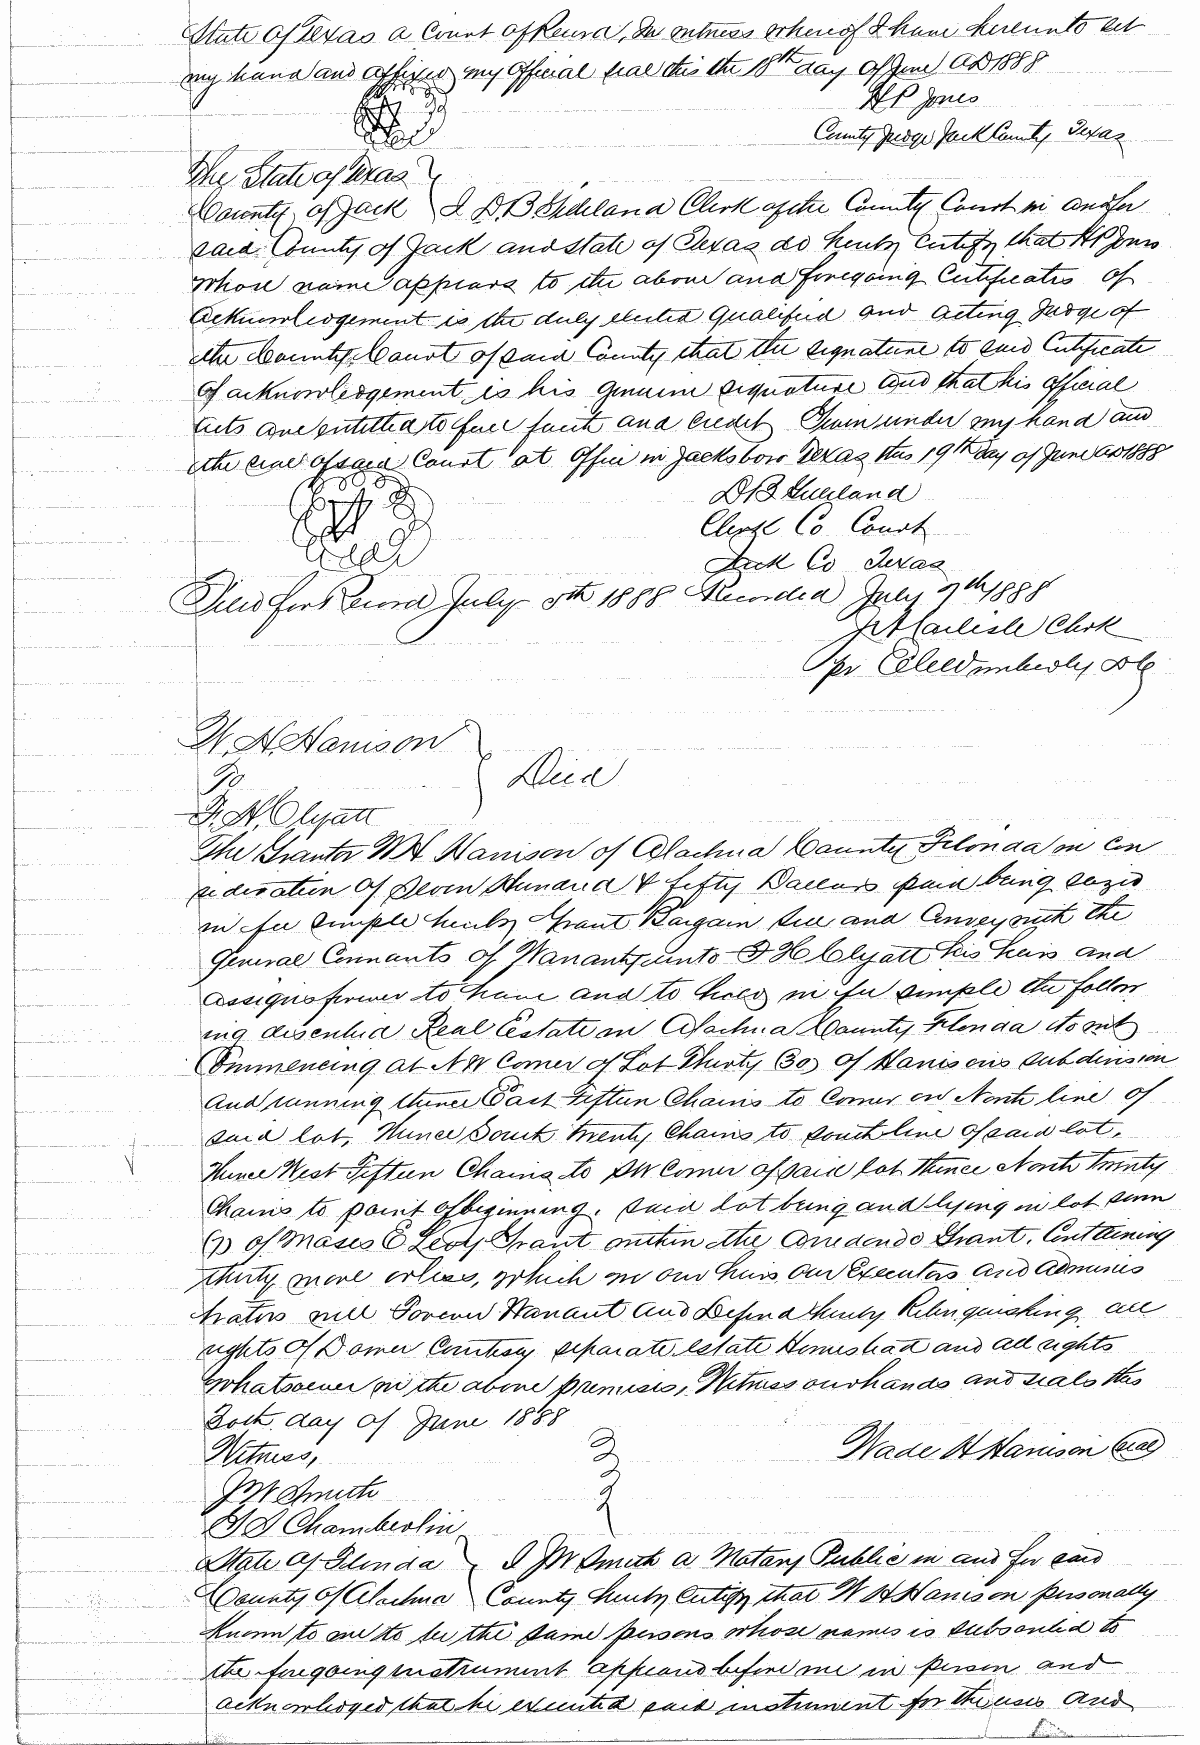 State of Texas a Court of Record, In witness whereof I have hereunto set
my hand and affixed my official seal this the 18th day of June AD 1888
H P Jones
County Judge Jack County Texas
The State of Texas
County of Jack I D B Clerk of the County Court in and for
said County of Jack and State of Texas do hereby Certify that H P Jones
whose name appears to the above and foregoing Certificates of
acknowledgement is the duly elected qualified and acting Judge of
the County Court of said County that the signature to said Certificate
of acknowledgement is his genuine signature and that his official
acts are entitled to full faith and credit Given under my hand and
the seal of said Court at office in Jacksboro Texas this 19th day of June AD 1888
D B
Clerk Co Court
Jack Co Texas
Seal
Filed for Record July 5th 1888 Recorded July 9th 1888
Carlisle Clerk
pr DC
W. H. Harrison
To Deed
F. H. Clyatt
The Grantor W H Harrison of Alachua County Florida in con
sideration of Seven Hundred & fifty Dollars paid being seized
in fee simple hereby Grant Bargain sell and Convey with the
General Covenants of Warranty unto F H Clyatt his heirs and
assigns forever to have and to hold in fee simple the follow
ing described Real Estate in Alachua County Florida to wit
Commencing at NW Corner of Lot Thirty 30) of Harrisons subdivision
and running thence East Fifteen Chains to Corner on North line of
said lot, thence South twenty Chains to south line of said lot,
thence West Fifteen Chains to SW Corner of said lot thence North twenty
Chains to point of beginning, said lot being and lying in lot seven
(7) of Moses E Levy Grant within the Arredondo Grant, Conttening
thirty more or less, which we our heirs our Executors and adminis
trators will Forever Warrant and Defend hereby Relinquishing all
rights of Dower Courtesy separate estate Homestead and all rights
whatsoever in the above premises, Witness our hands and seals this
30th day of June 1888
Witness,
Wade H Harrison (seal)
J W Smith
Chamberlin
State of Florida I J W Smith a Notary Public in and for said
County of Alachua County hereby Certify that W H Harrison personally
known to me to be the same persons whose names is subscribed to
the foregoing instrument appeared before me in person and
acknowledged that he executed said instrument for the uses and